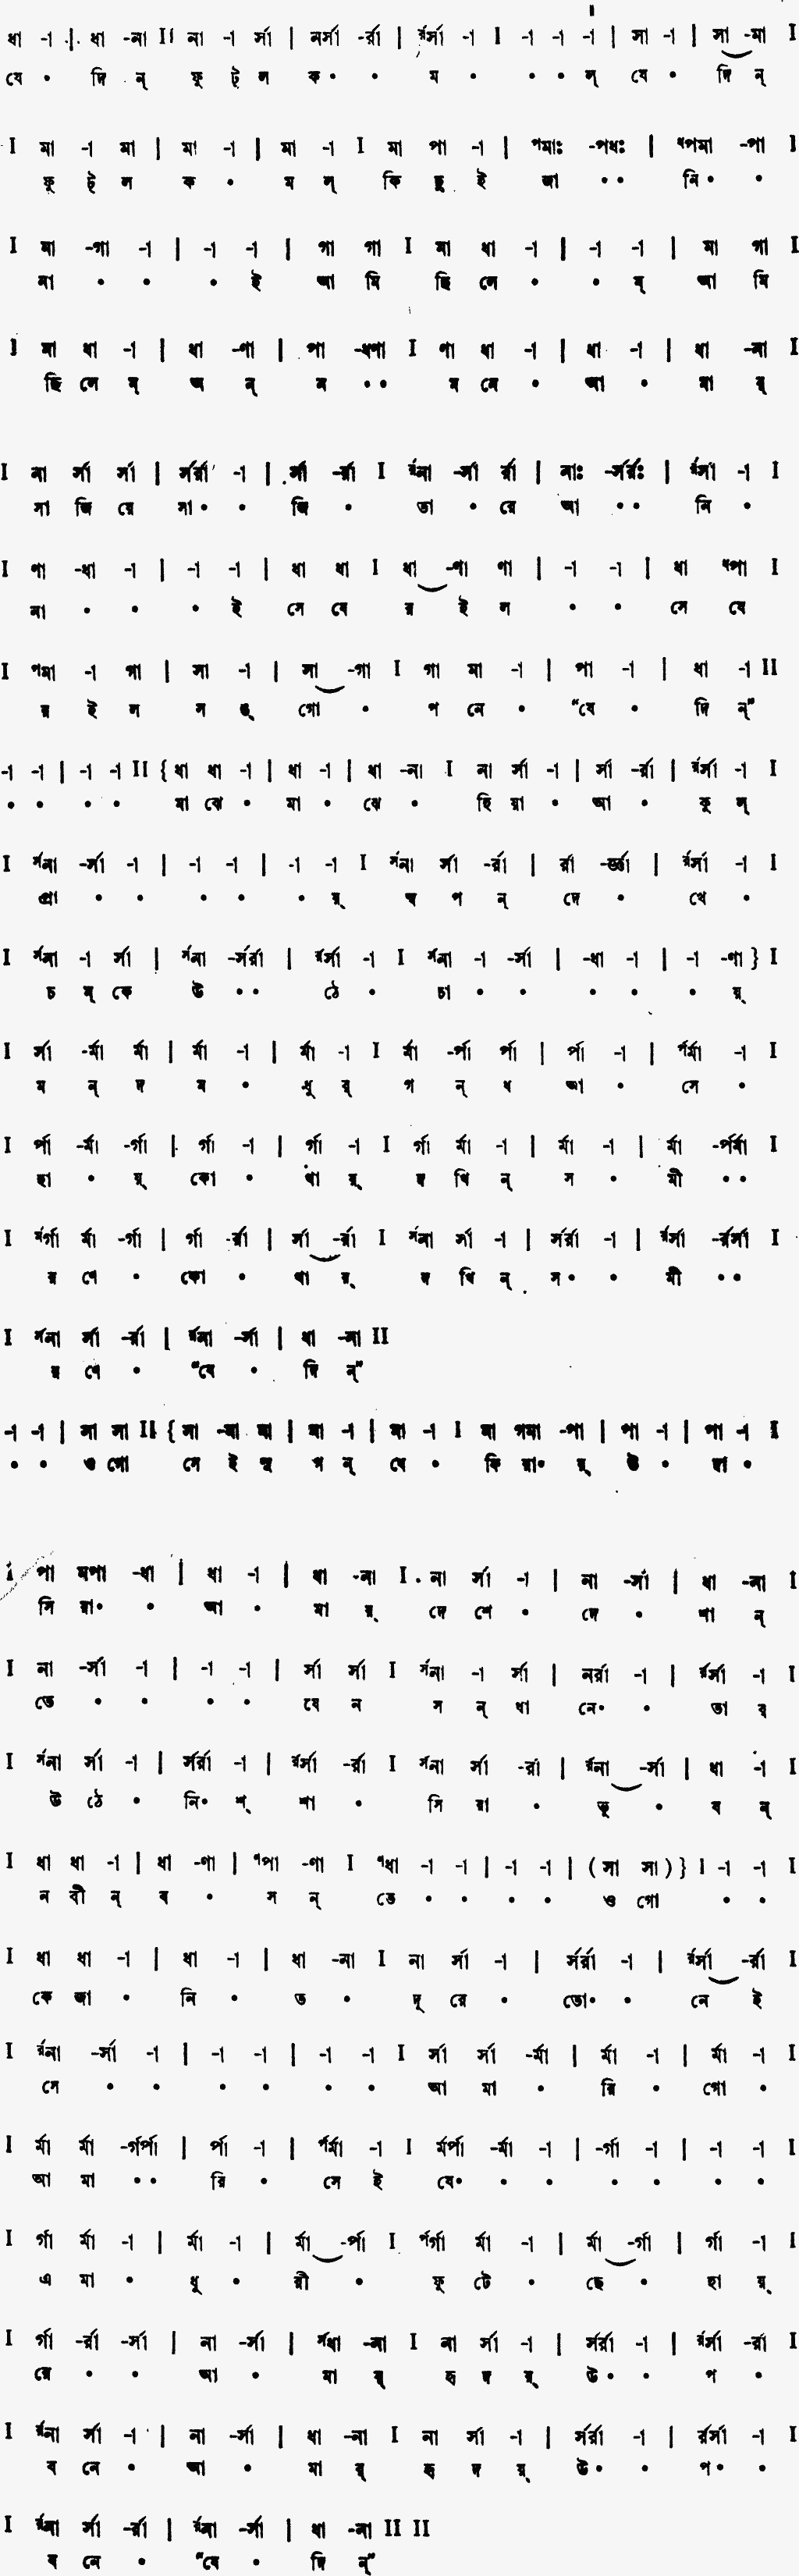 ধা -া | ধা -না II না -া র্সা | নর্সা -র্রা | র্রর্সা -া I -া -া -া | সা -া | সা -মা I
যে • দিন্ ফু ট্ ল ক • • ম • • • ল্ যে • দি ন্
I মা -া মা | মা -া | মা -া I মা পা -া | পমাঃ -পধঃ | ধপমা -পা I
ফু ট্ ল ক • ম ল্ কি ছু ই জা • • নি • •
I মা -গা -া | -া -া | গা গা I মা ধা -া | -া -া | মা গা I
না • • • ই আ মি ছি লে • • ম্ আ মি
I মা ধা -া | ধা -ণা | পা -ধণা I ণা ধা -া | ধা -া | ধা -না I
ছি লে ম্ অ ন্ ন • • ম নে • আ • মা র্
I না র্সা র্সা | র্সর্রা -া | র্সা -র্রা I র্রনা -র্সা র্রা | নাঃ -র্সর্রঃ | র্রর্সা -া I
সা জি য়ে সা • • জি • তা • রে আ • • নি •
I ণা -ধা -া | -া -া | ধা ধা I ধা -ণা ণা | -া -া | ধা ধপা I
না • • • ই সে যে র ই ল • • সে যে
I পমা -া গা | সা -া | সা -গা I গা মা -া | পা -া | ধা -া II
র ই ল স ঙ্ গো • প নে • “যে • দি ন্”
-া -া | -া -া II {ধা ধা -া | ধা -া | ধা -না I না র্সা -া | র্সা -র্রা | র্রর্সা -া I
• • • • মা ঝে • মা • ঝে • হি য়া • আ • কু ল্
I র্সনা -র্সা -া | -া -া | -া -া I র্সনা র্সা -র্রা | র্রা -র্জ্ঞা | র্রর্সা -া I
প্রা • • • • • য়্ স্ব প ন্ দে • খে •
I র্সনা -া র্সা | র্সনা -র্সর্রা | র্রর্সা -া I র্সনা -া -র্সা | -ধা -া | -া -ণা } I
চ ম্ কে উ • • ঠে • চা • • • • • য়্
I র্সা -র্মা র্মা | র্মা -া | র্মা -া I র্মা -র্পা র্পা | র্পা -া | র্পর্মা -া I
ম ন্ দ ম • ধু র্ গ ন্ ধ আ • সে •
I র্পা -র্মা -র্গা | র্গা -া | র্গা -া I র্গা র্মা -া | র্মা -া | র্মা -র্পর্মা I
হা • য়্ কো • থা য়্ দ খি ন্ স • মী • •
I র্মর্গা র্মা -র্গা | র্গা -র্রা | র্সা -র্রা I র্সনা র্সা -া | র্সর্রা -া | র্রর্সা -র্রর্সা I
র ণে • কো • থা য়্ দ খি ন্ স • • মী • •
I র্সনা র্সা -র্রা | র্রনা -র্সা | ধা -না II
র ণে • “যে • দি ন্”
-া -া | সা সা II {সা -মা মা | মা -া | মা -া I মা গমা -পা | পা -া | পা -া I
• • ও গো সে ই সু প ন্ যে • ফি রা • য়্ উ • দা •
I পা মপা -ধা | ধা -া | ধা -না I না র্সা -া | না -র্সা | ধা -না I
সি য়া • • আ • মা য়্ দে শে • দে • শা ন্
I না -র্সা -া | -া -া | র্সা র্সা I র্সনা -া র্সা | নর্রা -া | র্রর্সা -া I
তে • • • • যে ন স ন্ ধা নে • • তা র্
I র্সনা র্সা -া | র্সর্রা -া | র্রর্সা -র্রা I র্সনা র্সা -র্রা | র্রনা -র্সা | ধা -া I
উ ঠে • নি • শ্ শা • সি য়া • ভূ • ব ন্
I ধা ধা -া | ধা -ণা | ণপা -ণা I ণধা -া -া | -া -া | (সা সা)} I -া -া I
ন বী ন্ ব • স ন্ তে • • • • ও গো • •
I ধা ধা -া | ধা -া | ধা -না I না র্সা -া | র্সর্রা -া | র্রর্সা -র্রা I
কে জা • নি • ত • দূ রে • তো • • নে ই
I র্রনা -র্সা -া | -া -া | -া -া I র্সা র্সা -র্মা | র্মা -া | র্মা -া I
সে • • • • • • আ মা • রি • গো •
I র্মা র্মা -র্গর্পা | র্পা -া | র্পর্মা -া I র্মর্পা -র্মা -া | -র্গা -া | -া -া I
আ মা • • রি • সে ই যে • • • • • • •
I র্গা র্মা -া | র্মা -া | র্মা -র্পা I র্পর্গা র্মা -া | র্মা -র্গা | র্গা -া I
এ মা • ধু • রী • ফু টে • ছে • হা য়্
I র্গা -র্রা -র্সা | না -র্সা | র্সধা -না I না র্সা -া | র্সর্রা -া | র্রর্সা -র্রা I
রে • • আ • মা র্ হৃ দ য়্ উ • • প •
I র্রনা র্সা -া | না -র্সা | ধা -না I না র্সা -া | র্সর্রা -া | র্রর্সা -া I
ব নে • আ • মা র্ হৃ দ য়্ উ • • প • •
I র্রনা র্সা -র্রা | র্রনা -র্সা | ধা -না II II
ব নে • “যে • দি ন্”